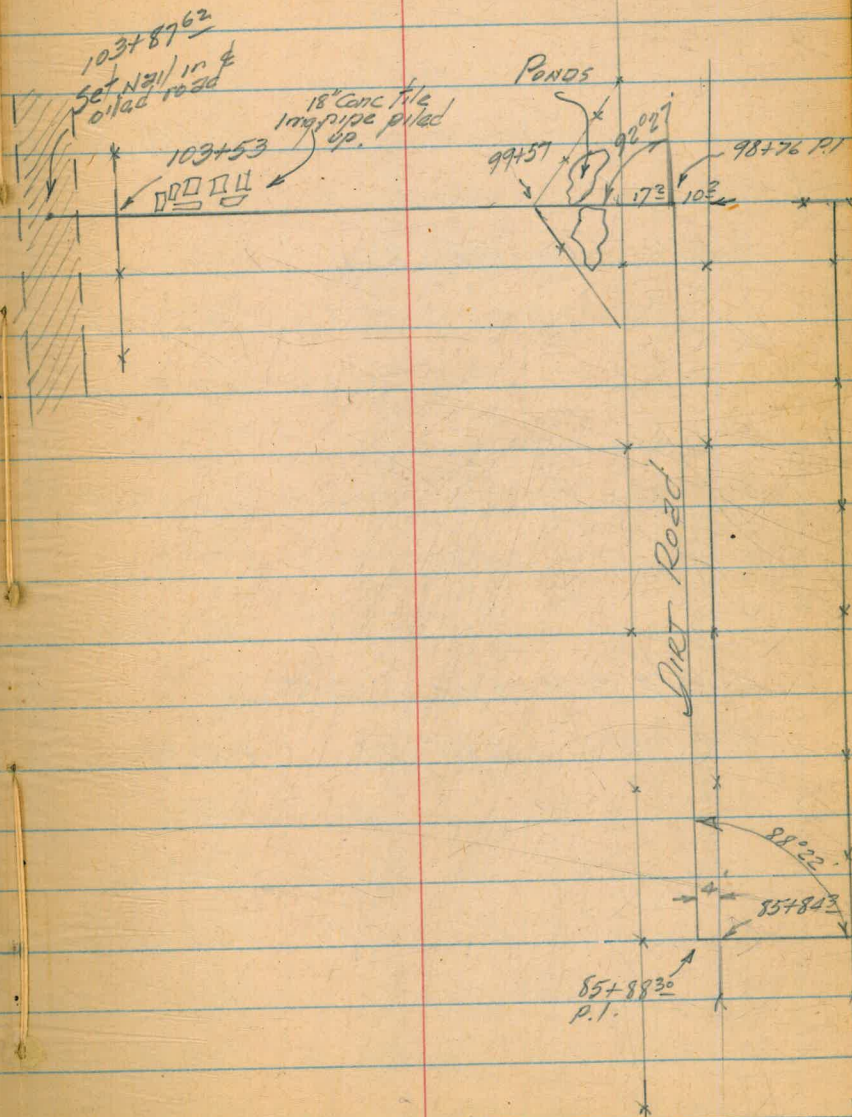 103+87 62
Set Nail in ℄
oiled road
18" Conc Tile
Irrg pipe piled
up.
103+53
PONDS
99+57
92°02'
98+76 P.I.
17 2
10 2
DIRT ROAD
88°22'
4'
85+84 3
85+88 30
P.I.